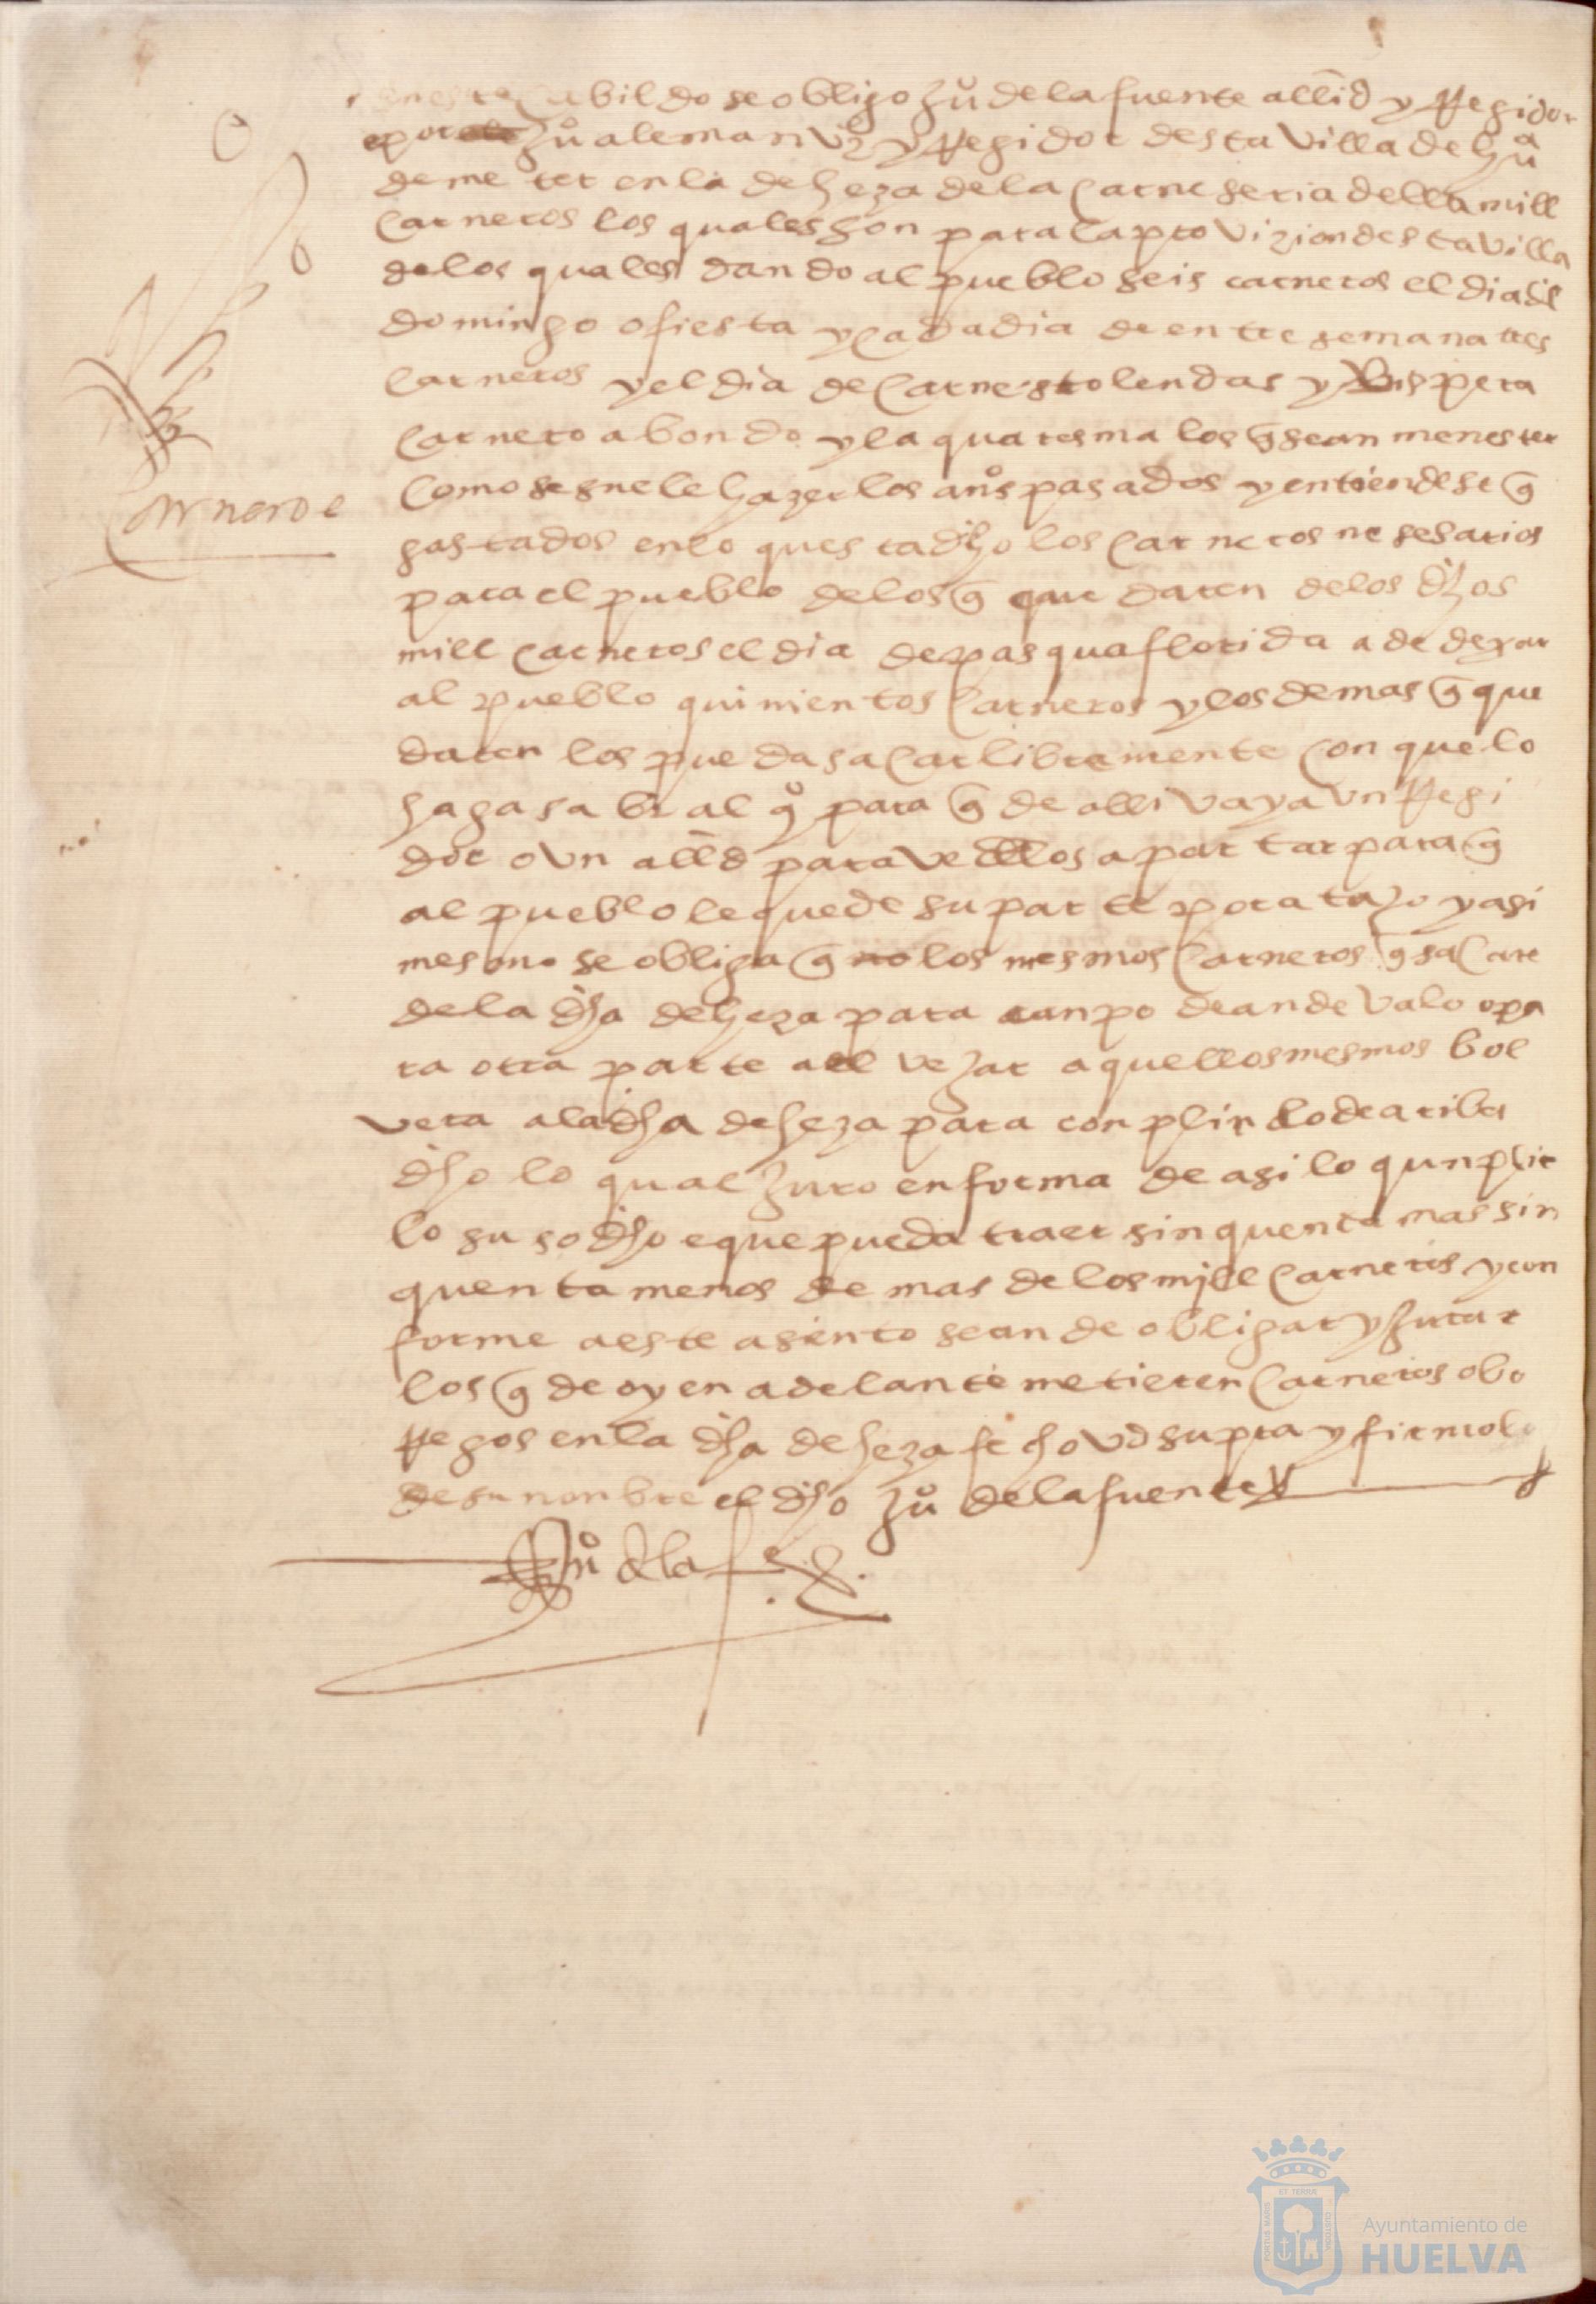 en este cabildo se obligo Juº de la fuente allid y Regidor
e por Juº aleman vzº y Regidor desta villa de hua
de meter en la deheza de la carneseria della mill
carneros los quales son para la provizion desta villa
de los quales dando al pueblo seis carneros el dia del
domingo o fiesta y cada dia de entre semana tres
carneros y el dia de carnestolendas y bispera
carnero abondo y la quaresma los q sean menester
como se suele hazer los anºs pasados y entiendese q
gastados en lo questa dho los carneros nesesarios
para el pueblo de los q quedaren de los dhos
mill carneros el dia de pasqua florida a de dexar
al pueblo quinientos carneros y los demas q que
daren los pueda sacar libremente con que lo
haga saber al qº para q de alli vaya vn Regi
dor o vn alld para vellos apartar para q
al pueblo le quede su parte por atajo y asi
mesmo se obliga q los mesmos carneros q sacare
de la dha deheza para canpo de andevalo o pa
ra otra parte a elvejar aquellos mesmos bol
vera a la dha deheza para conplir lo de ariba
dho lo qual juro en forma de asi lo qunplir
lo suso dho e que pueda traer sinquenta mas sin
quenta menos de mas de los mill carneros y con
forme a este asiento sean de obligar y jurar
los q de oy en adelante metieren carneros o bo
Regos en la dha deheza fecho vd supra y firmolo
de su nonbre el dho Juº de la fuente
carneros
Juº d la fe
Ayuntamiento de
HUELVA